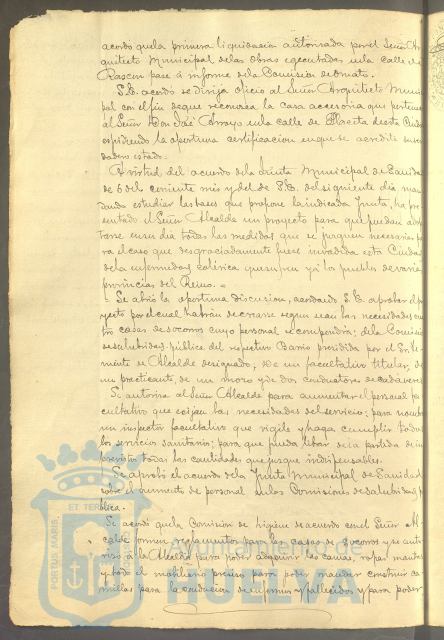 acordó que la primera liquidación autorizada por el Señor Ar
quitecto Municipal de las Obras ejecutadas en la calle de
Rascon pase á informe de la Comision de Ornato.
S.E. acordó se dirija oficio al Señor Arquitecto Munici
pal con el fin de que reconozca la casa accesoria que pertenece
al Señor Don José Arroyo en la calle de Placeta de esta Ciudad
expidiendo la oportuna certificacion en que se acredite su ver
dadero estado.
A virtud del acuerdo de la Junta Municipal de Sanidad
de 6 del corriente mes y del de S.E. del siguiente dia man
dando estudiar las bases que propone la indicada Junta, ha pre
sentado el Señor Alcalde un proyecto para que puedan adop
tarse en su dia todas las medidas que se juzguen necesarias pa
ra el caso que desgraciadamente fuese invadida esta Ciudad
de la enfermedad colérica que sufren ya los pueblos de varias
provincias del Reino.
Se abrió la oportuna discusion, acordando S.E. aprobar el pro
yecto por el cual habrán de crearse segun sean las necesidades cua
tro casas de socorros cuyo personal se compondrá; de la Comision
de salubridad pública del respectivo Barrio presidida por el Sr. Te
niente de Alcalde designado, de un facultativo titular, de
un practicante, de un mozo y de dos conductores de cadáveres.
Se autoriza al Señor Alcalde para aumentar el personal fa
cultativo que exijan las necesidades del servicio; para nombrar
un inspector facultativo que vigile y haga cumplir todos
los servicios sanitarios; para que pueda librar de la partida de im
previstos todas las cantidades que juzgue indispensables.
Se aprobó el acuerdo de la Junta Municipal de Sanidad
sobre el aumento de personal en las Comisiones de salubridad pú
blica.
Se acordó que la Comision de higiene de acuerdo con el Señor Al
calde formen reglamentos para las casas de socorros y se auto
rizó á la Alcaldia para poder adquirir las camas, ropas, mantas
y todo el mobiliario preciso para poder mandar construir ca
millas para la conduccion de enfermos y fallecidos y para poder
PORTUS MARIS ET TERRÆ
Ayuntamiento de
HUELVA